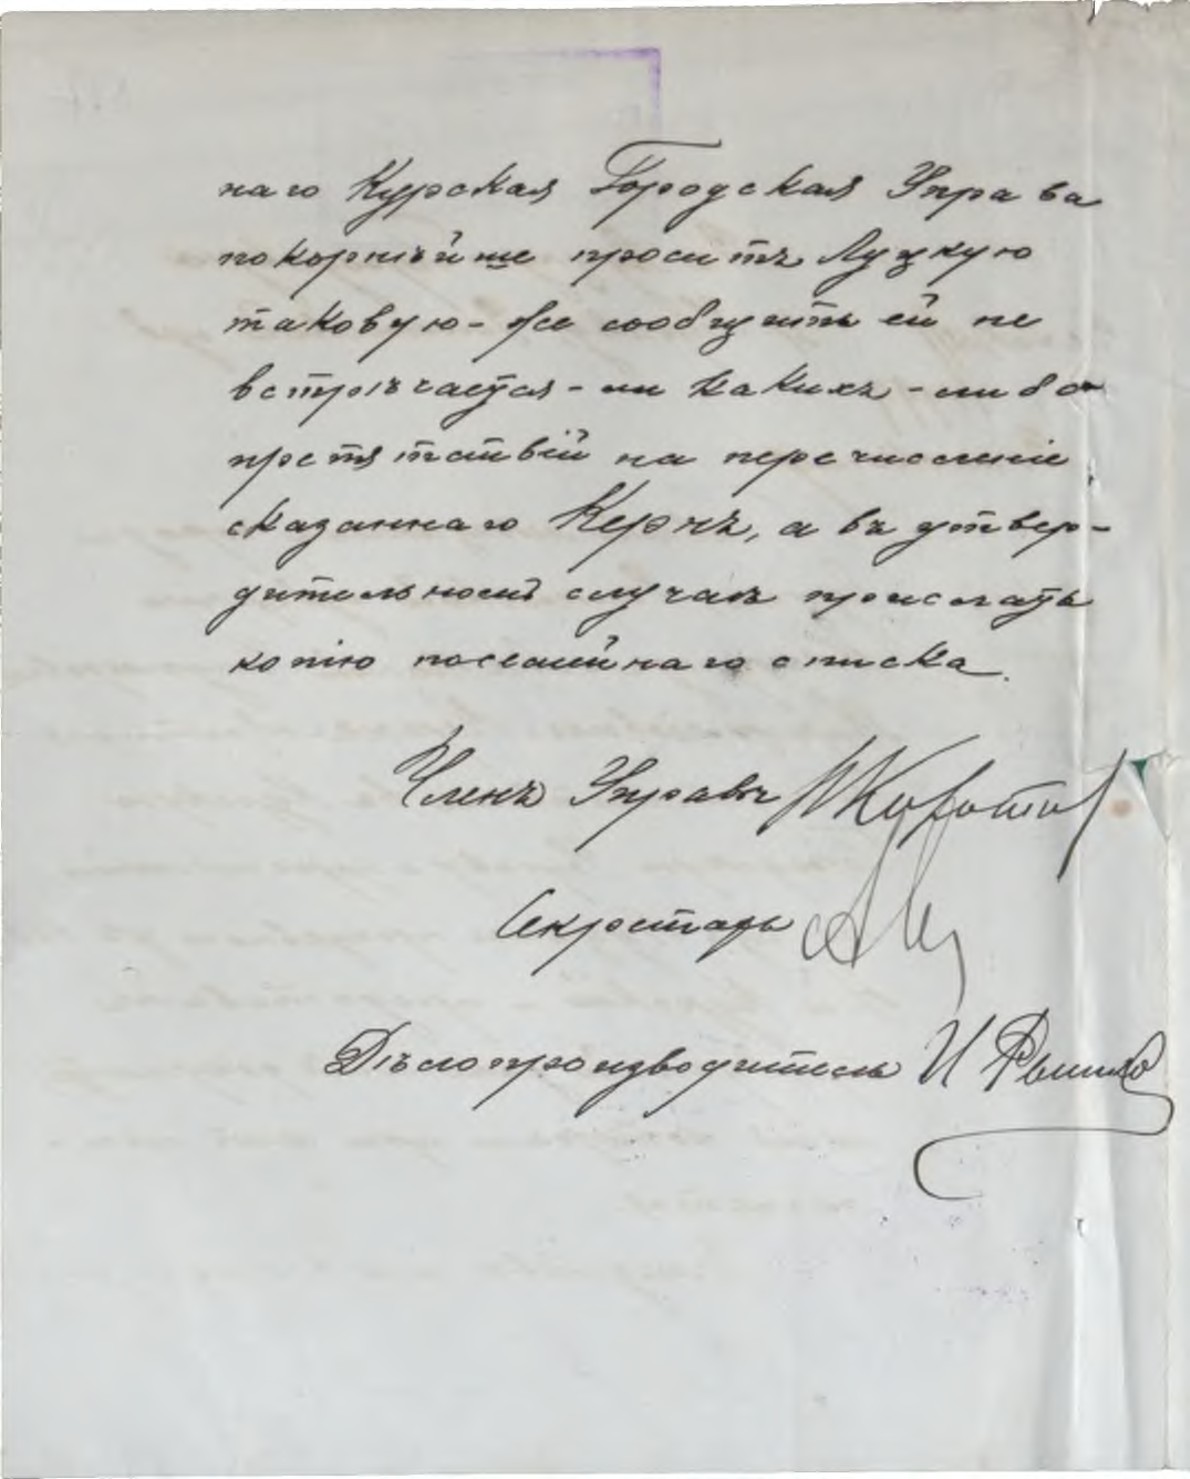 наго Курская Городская Управа
покорнѣйше проситъ Луцкую
таковую-же сообщить ей не
встрѣчается-ли какихъ-либо
препятствій на перечисленіе
сказаннаго Кернъ, а въ утвер-
дительномъ случаѣ прислать
копію посемейнаго списка.
Членъ Управы
Секретарь
Дѣлопроизводитель И